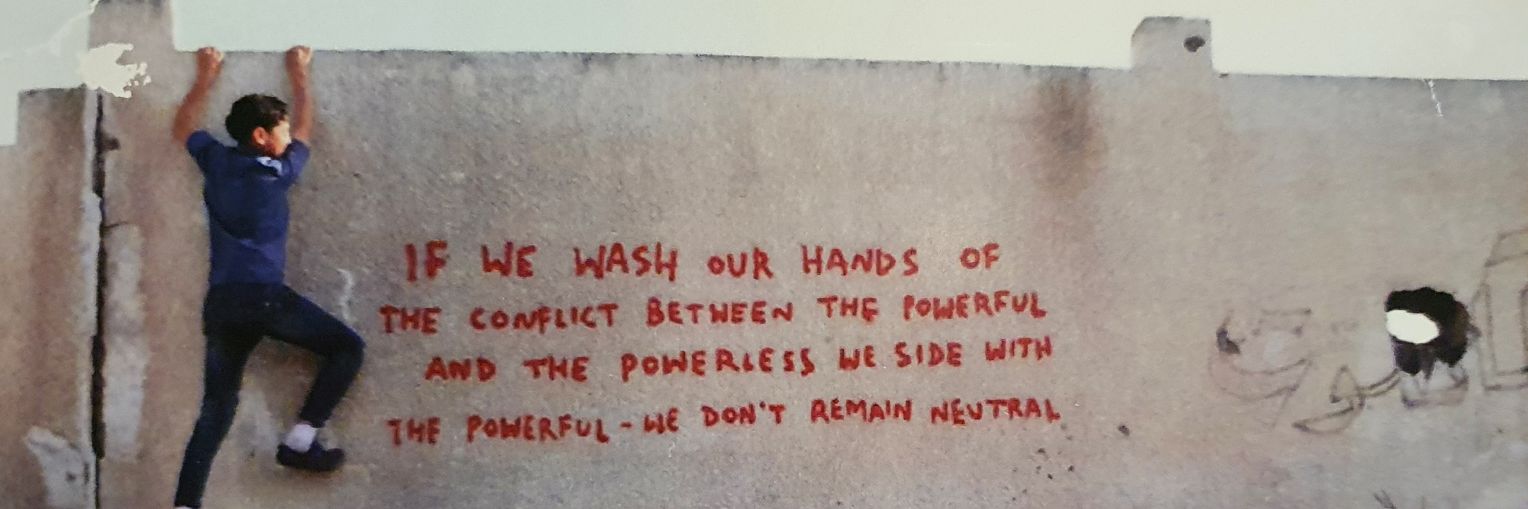 IF WE WASH OUR HANDS OF
THE CONFLICT BETWEEN THE POWERFUL
AND THE POWERLESS WE SIDE WITH
THE POWERFUL - WE DON'T REMAIN NEUTRAL